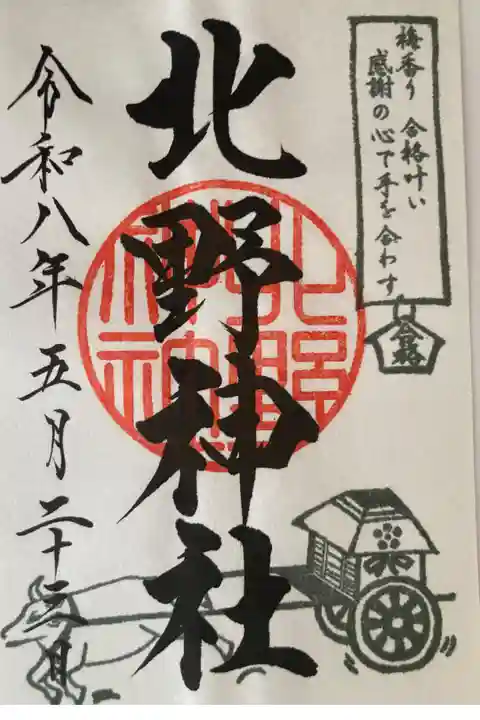 梅香り 合格叶い
感謝の心で手を合わす
合格
北野神社
北野神社
令和八年五月二十三日